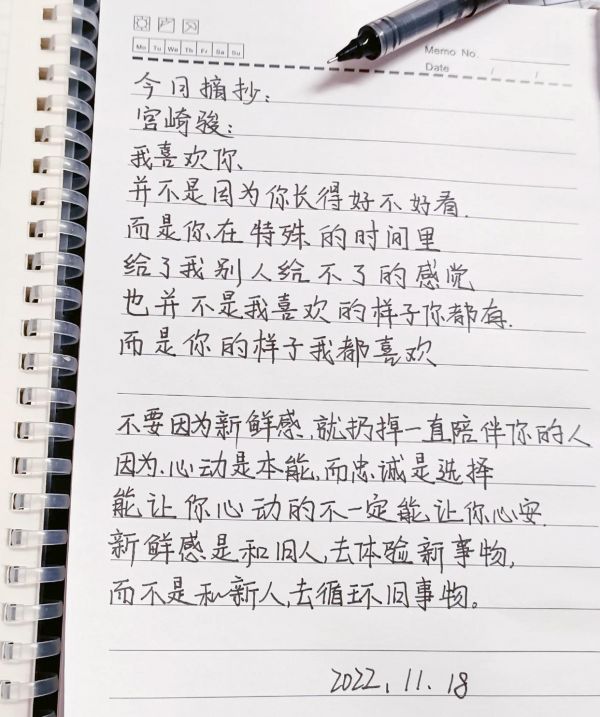 Mo Tu We Th Fr Sa Su
Memo No.
Date / /
今日摘抄：
宫崎骏：
我喜欢你、
并不是因为你长得好不好看.
而是你在特殊的时间里
给了我别人给不了的感觉
也并不是我喜欢的样子你都有.
而是你的样子我都喜欢
不要因为新鲜感,就扔掉一直陪伴你的人
因为.心动是本能,而忠诚是选择
能让你心动的不一定能让你心安.
新鲜感是和旧人,去体验新事物,
而不是和新人,去循环旧事物。
2022.11.18